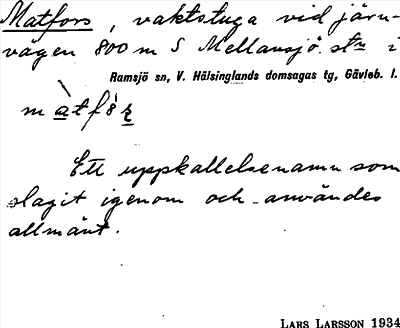 Matfors, vaktstuga vid järn-
vägen 800 m S Mellansjö. stn i
Ramsjö sn, V. Hälsinglands domsagas tg, Gävleb. l.
màtfòr̲
Ett uppkallelsenamn som
slagit igenom och användes
allmänt.
LARS LARSSON 1934